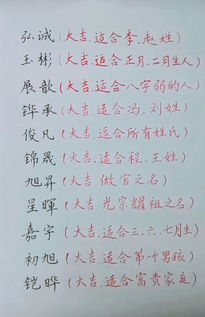 弘诚(大吉.适合李.赵姓)
王彬(大吉.适合正月.二月生人)
展歆(大吉.适合八字弱的人)
铧承(大吉.适合冯.刘姓)
俊凡(大吉.适合所有姓氏)
锦晟(大吉.适合程.王姓)
旭昇(大吉.做官之名)
星暉(大吉.光宗耀祖之名)
嘉宇(大吉.适合三.六.七月生)
初旭(大吉.适合第个男孩)
铠晔(大吉.适合富贵家庭)